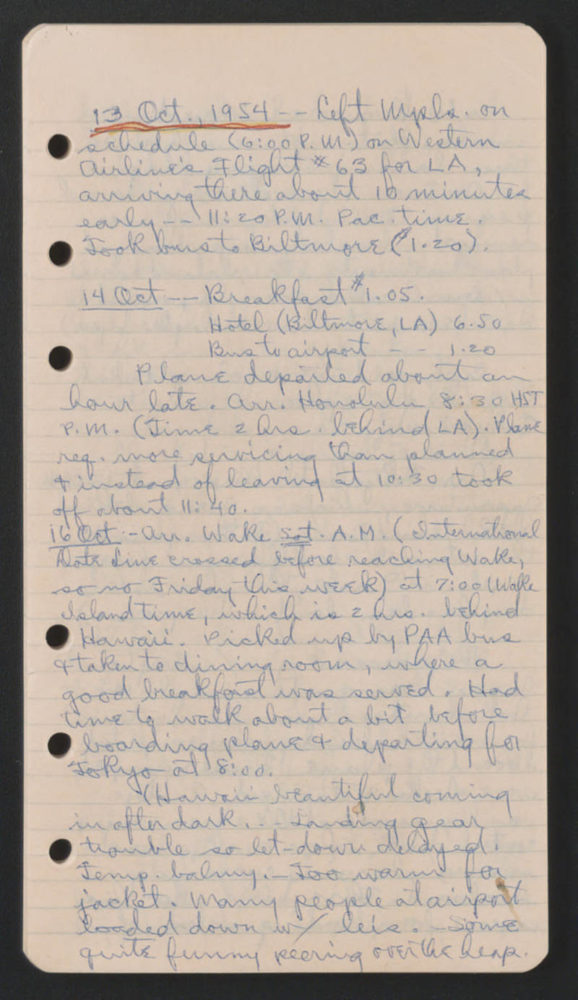 13 Oct., 1954 -- Left Mpls. on
schedule (6:00 P.M.) on Western
Airline's Flight #63 for LA,
arriving there about 10 minutes
early -- 11:20 P.M. Pac. time.
Took bus to Biltmore ($1.20).
14 Oct -- Breakfast $1.05.
Hotel (Biltmore, LA) 6.50
Bus to airport - - 1.20
Plane departed about an
hour late. Arr. Honolulu 8:30 HST
P.M. (Time 2 hrs. behind LA). Plane
req. more servicing than planned
& instead of leaving at 10:30 took
off about 11:40.
16 Oct - Arr. Wake Sat. A.M. (International
Date Line crossed before reaching Wake,
so no Friday this week) at 7:00 (Wake
Island time, which is 2 hrs. behind
Hawaii. Picked up by PAA bus
& taken to dining room, where a
good breakfast was served. Had
time to walk about a bit before
boarding plane & departing for
Tokyo at 8:00.
(Hawaii beautiful coming
in after dark. - Landing gear
trouble so let-down delayed.
Temp. balmy. - Too warm for
jacket. Many people at airport
loaded down w/ leis. - Some
quite funny peering over the heap.